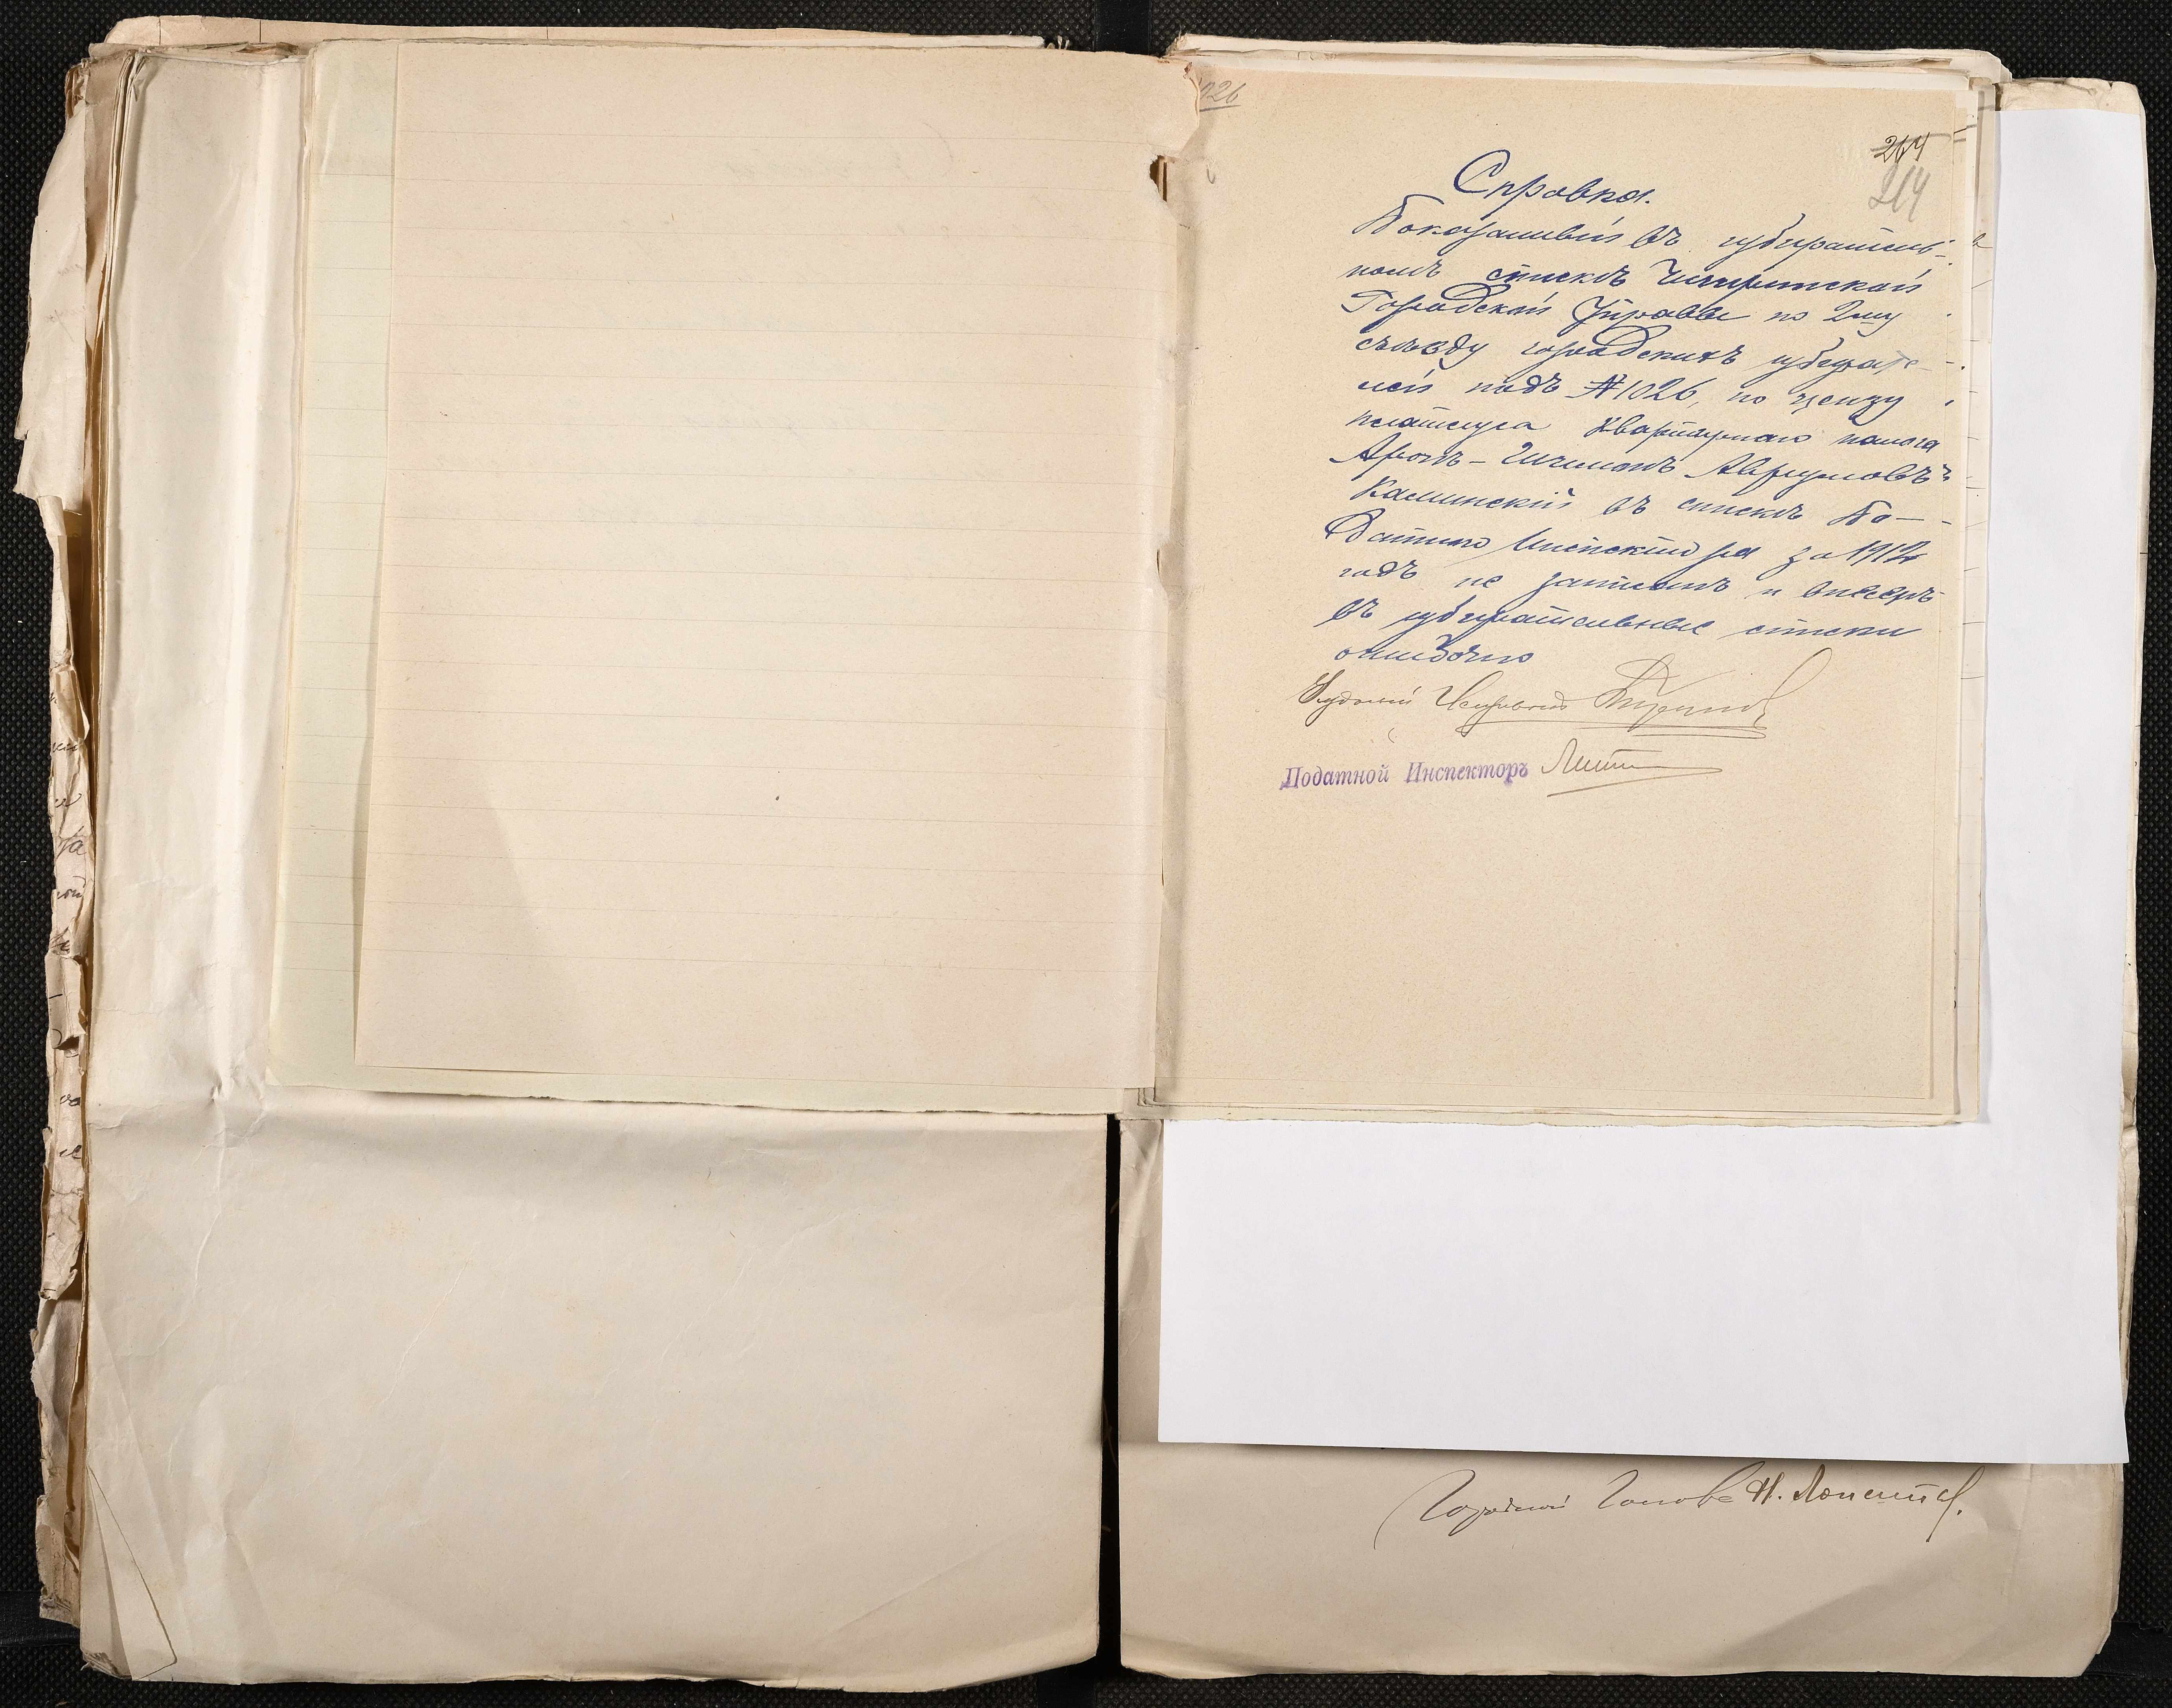 1026
264
214
Справка.
Показанный въ избиратель-
номъ спискѣ Чигиринской
Городской Управы по 2му
съѣзду городскихъ избирате-
лей подъ №1026, по цензу
платежа квартирнаго налога
Аронъ-Шлема Аврумовъ
Калинскій въ спискѣ По-
датного Инспектора за 1912
годъ не записанъ и внесенъ
въ избирательные списки
ошибочно
Податной Инспекторъ
Городской Голова Н.